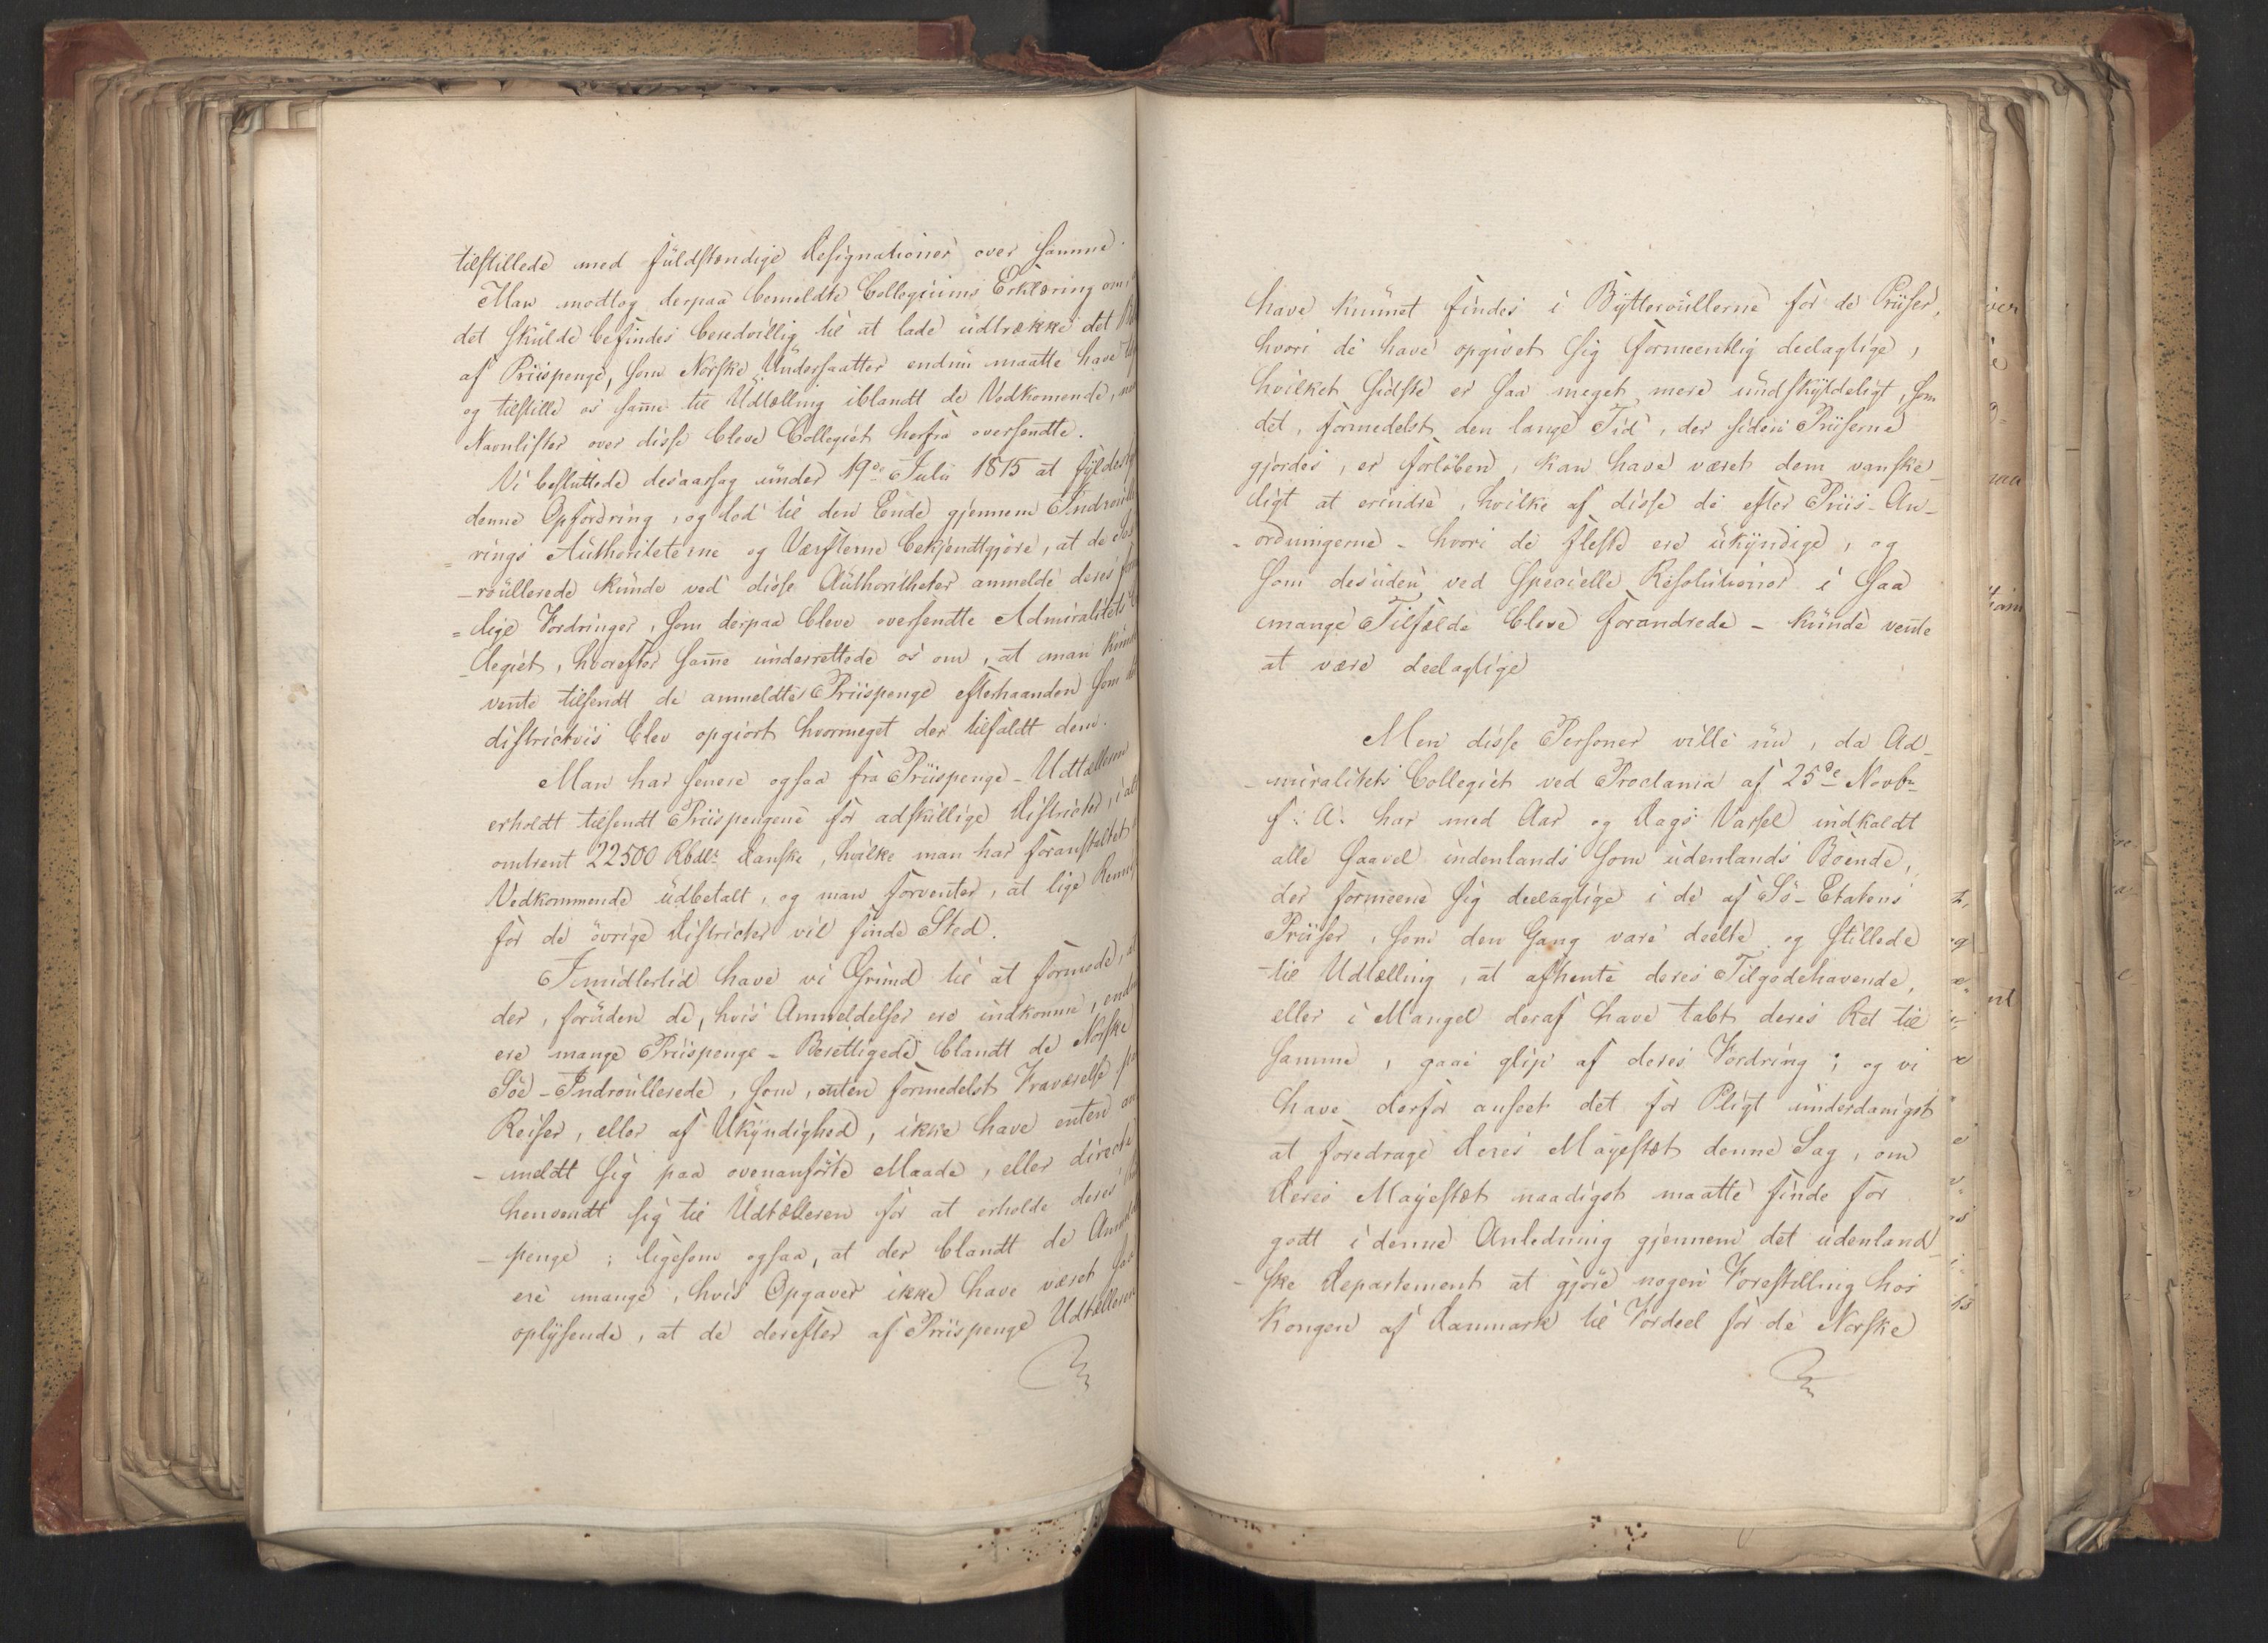 tilstillede med fuldstændige Designationer over samme.
Man modtog derpaa bemeldte Collegiums Erklæring om
det skulde befindes beredvillig til at lade udtrække det
af Priispenge, som Norske Undersaatter endnu maatte have
og tilstille os samē til Udtælling iblandt de Vedkomende,
Navnlister over disse bleve Collegiet herfra oversendte.
Vi besluttede desaarsag under 19de Julii 1815 at
denne Opfordring, og lod til den Ende gjennem
=rings Authoriteterne og Værfterne bekjendtgjøre, at de
-roullerede kunde ved disse Authoritheter anmelde deres
=lige Fordringer, som derpaa bleve oversendte Admiralitets
-legiet, hvorefter samē underrettede os om, at man
vente tilsendt de anmeldte Priispenge efterhaanden som
districtviis blev opgiort hvormeget der tilfaldt dem.
Man har senere ogsaa fra Priispenge-Udtælleren
erholdt tilsendt Priispengene for adskillige Districter,
omtrent 22500 Rbdlr. Danske, hvilke man har foranstaltet
Vedkommende udbetalt, og man forventer, at lige
for de øvrige Districter vil finde Sted.
Imidlertid have vi Grund til at formode,
der, foruden de, hvis Anmeldelser ere indkomne,
ere mange Priispenge-Berettigede blandt de Norske
Söe-Indroullerede, som, enten formedelst Fraværelse
Reiser, eller af Ukyndighed, ikke have enten
-meldt sig paa ovenanførte Maade, eller directe
henvendt sig til Udtælleren for at erholde deres
-penge; ligesom ogsaa, at der blandt de
ere mange, hvis Opgaver ikke have været
oplysende, at de derefter af Priispenge Udtælleren
have kunnet findes i Bytteroullerne for de Priiser,
hvori de have opgivet sig formeentlig deelagtige,
hvilket sidste er saa meget mere undskyldeligt, som
det, formedelst den lange Tid, der siden Priiserne
gjordes, er forløben, kan have været dem vanske-
ligt at erindre, hvilke af disse de efter Priis-An-
-ordningerne - hvori de fleste ere ukyndige, og
som desuden ved specielle Resolutioner i saa
mange Tilfælde bleve forandrede - kunde vente
at være deelagtige
Men disse Personer ville nu, da Ad-
-miralitets Collegiet ved Proclama af 25de Novbr
f: A: har med Aar og Dags Varsel indkaldt
alle saavel indenlands som udenlands Boende,
der formeene sig deelagtige i de af Sö-Etatens
Priiser, som den Gang vare deelte og stillede
-til Udtælling, at afhente deres Tilgodehavende,
eller i Mangel deraf have tabt deres Ret til
samme, gaae glip af deres Fordring; og vi
have derfor anseet det for Pligt underdanigst
at foredrage Deres Mayestæt denne Sag, om
Deres Mayestæt naadigst maatte finde for
godt i denne Anledning gjennem det udenland-
-ske Departement at gjøre nogen Forestilling hos
Kongen af Danmark til Fordeel for de Norske